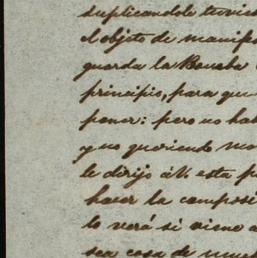 suplicandole tuvie
el objeto de manifes
guarda la Bomba
principio, para que
poner: pero no hab
y no queriendo mo
le dirijo á V. esta p
hacer la composi
lo verá si viene a
sea cosa de much